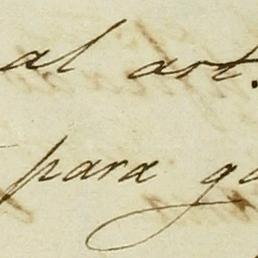 al art.
para